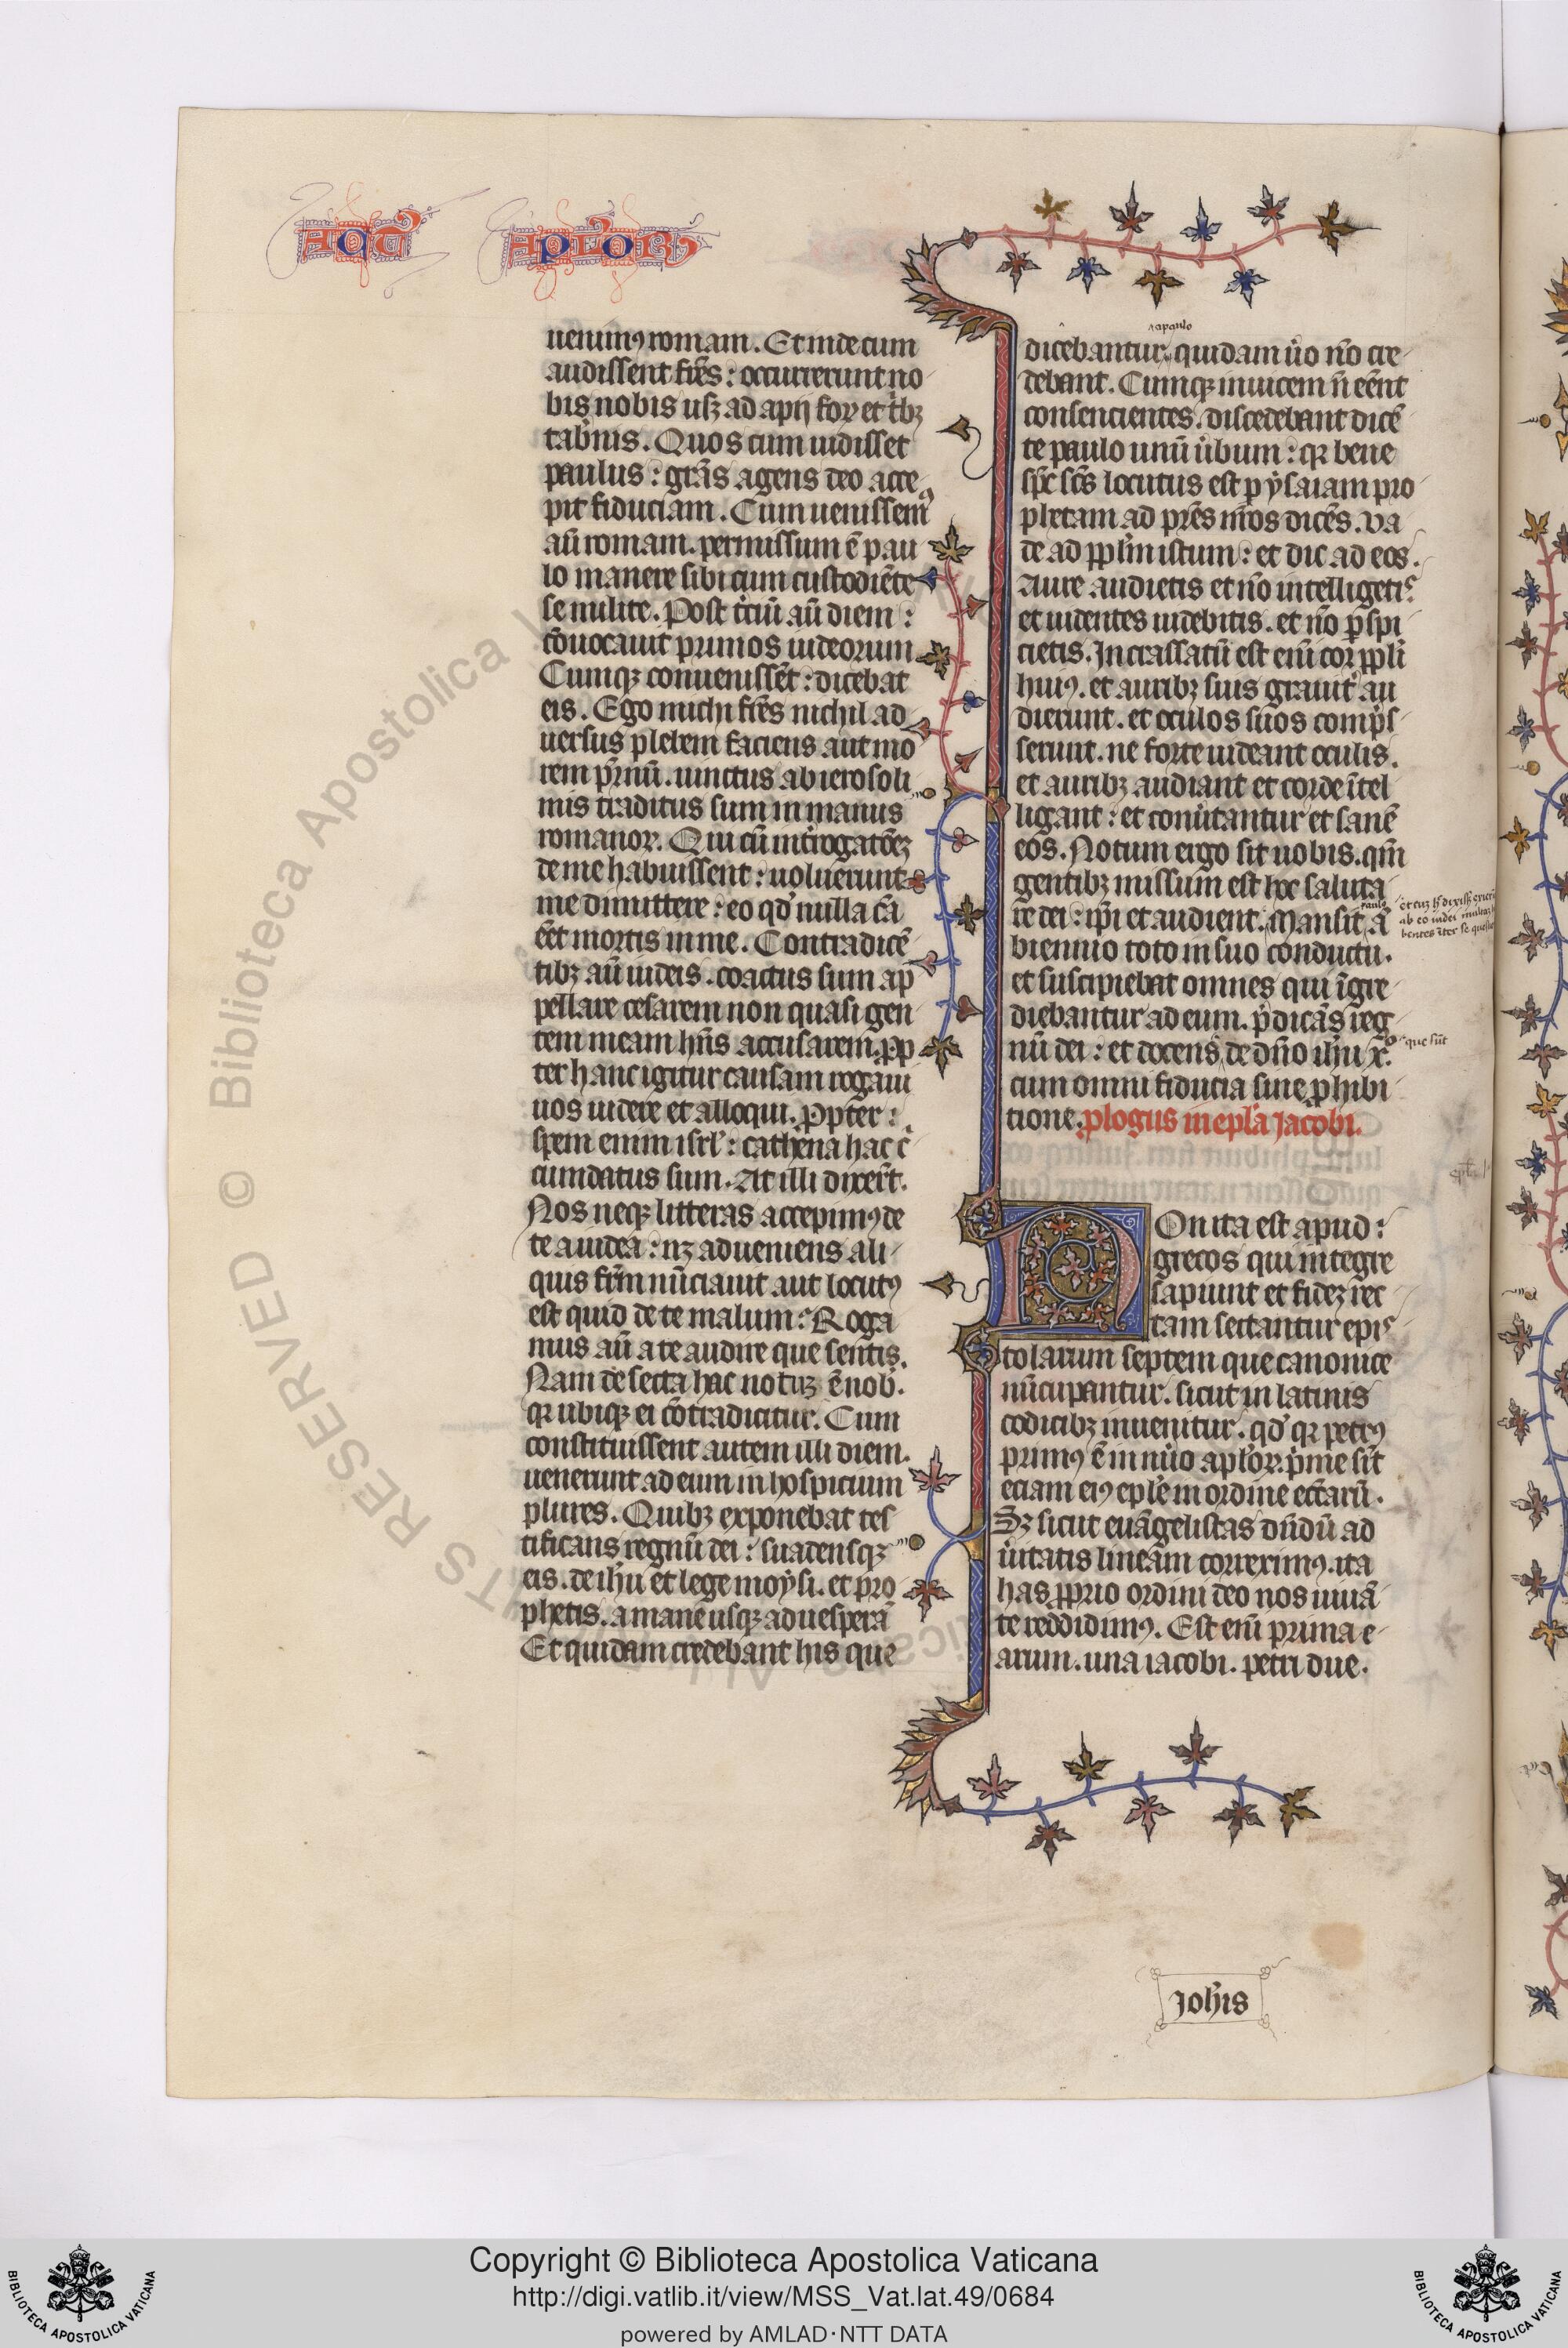 Act Aplor̄
uenimꝰ romam. Et inde cum
audissent fr̄es: occurrerunt no
bis nobis usqꝫ ad apij forꝫ et t̾bꝫ
tab̾nis. Quos cum uidisset
paulus: gr̄as agens deo acce
pit fiduciam. Cum uenissemꝰ
aūt romam. permissum ē pau
lo manere sibi cum custodiēte
se milite. Post t̾ciū aūt diem:
cōuocauit primos iudeorum
Cumqꝫ conuenissēt: dicebat
eis. Ego uiri fr̄es nichil ad
uersus plebem faciens aut mo
rem pr̄nū. uinctus ab ierosoli
mis traditus sum in manus
romanoꝝ. Qui cū int̾rogatōꝫ
de me habuissent: uoluerunt
me dimittere: eo qd̾ nulla cā
eēt mortis in me. Contradicē
tibꝫ aūt iudeis. coactus sum ap
pellare cesarem non quasi gen
tem meam hn̄s accusarem. ꝓp
ter hanc igitur causam rogaui
uos uidere et alloqui. Ppter:
spem enim isrl̾: cathena hac c̾
cumdatus sum. At illi dixer̄t.
Nos neqꝫ litteras accepimꝰ de
te a iudea: nꝫ adueniens ali
quis fr̄m nūciauit aut locutꝰ
est quid de te malum: Roga
mus aūt a te audire que sentis.
Nam de secta hac notuꝫ ē nob̾.
qꝛ ubiqꝫ ei cōtradicitur. Cum
constituissent autem illi diem.
uenerunt ad eum in hospicium
plures. Quibꝫ exponebat tes
tificans regnū dei: suadensqꝫ
eis. de ih̄u et lege moysi. et pro
phetis. a mane usqꝫ ad uesperā
Et quidam credebant his que
a paulo
dicebantur. quidam u̾o nō cre
debant. Cumqꝫ inuicem n̄ eēnt
consencientes. discedebant dicē
te paulo unū u̾bum: qꝛ bene
sp̄c sc̄s locutus est ꝑ ysaiam pro
phetam ad pr̄es nr̄os dicēs. Va
de ad ppl̄m istum: et dic ad eos.
Aure audietis et nō intelligetis
et uidentes uidebitis. et nō ꝑspi
cietis. Incrassatū est enī cor ppl̄i
huiꝰ. et auribꝫ suis grauit̾ au
dierunt. et oculos suos comp̄s
serunt. ne forte uideant oculis.
et auribꝫ audiant et corde ītel
ligant: et conu̾tantur et sanē
eos. Notum ergo sit uobis. qm̄
gentibꝫ missum est hoc saluta
re dei: ip̄i et audient. Mansit aūt
paulꝰ
biennio toto in suo conductu.
et suscipiebat omnes qui īgre
diebantur ad eum. p̄dicās reg
nū dei: et docens de dn̄o ih̄u xp̄o
que sūt
cum omni fiducia sine ꝓhibi
tione. ꝓlogus in epl̄a Jacobi.
Non ita est apud:
grecos qui integre
sapiunt et fideꝫ rec
tam sectantur epis
tolarum septem que canonice
nūcupantur. sicut in latinis
codicibꝫ inuenitur. qd̾ qꝛ petrꝰ
primꝰ ē in nu̾o apl̄oꝝ. p̾me sūt
eciam eiꝰ epl̄e in ordine cet̾arū.
Sꝫ sicut euāgelistas dn̄dū ad
u̾itatis lineam correximꝰ. ita
has ꝓprio ordini deo nos iuuā
te reddidimꝰ. Est enī prima e
arum. una iacobi. petri due.
joh̄is
© Biblioteca Apostolica Vaticana
Copyright © Biblioteca Apostolica Vaticana
http://digi.vatlib.it/view/MSS_Vat.lat.49/0684
powered by AMLAD·NTT DATA
BIBLIOTECA APOSTOLICA VATICANA
BIBLIOTECA APOSTOLICA VATICANA